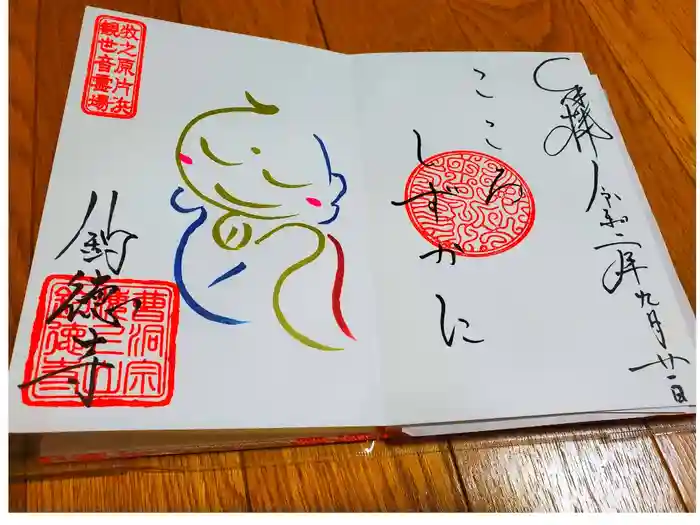 奉拝 令和二年九月廿一日
こころ
しずかに
牧之原片浜
観世音霊場
釣徳寺
曹洞宗
釣徳寺